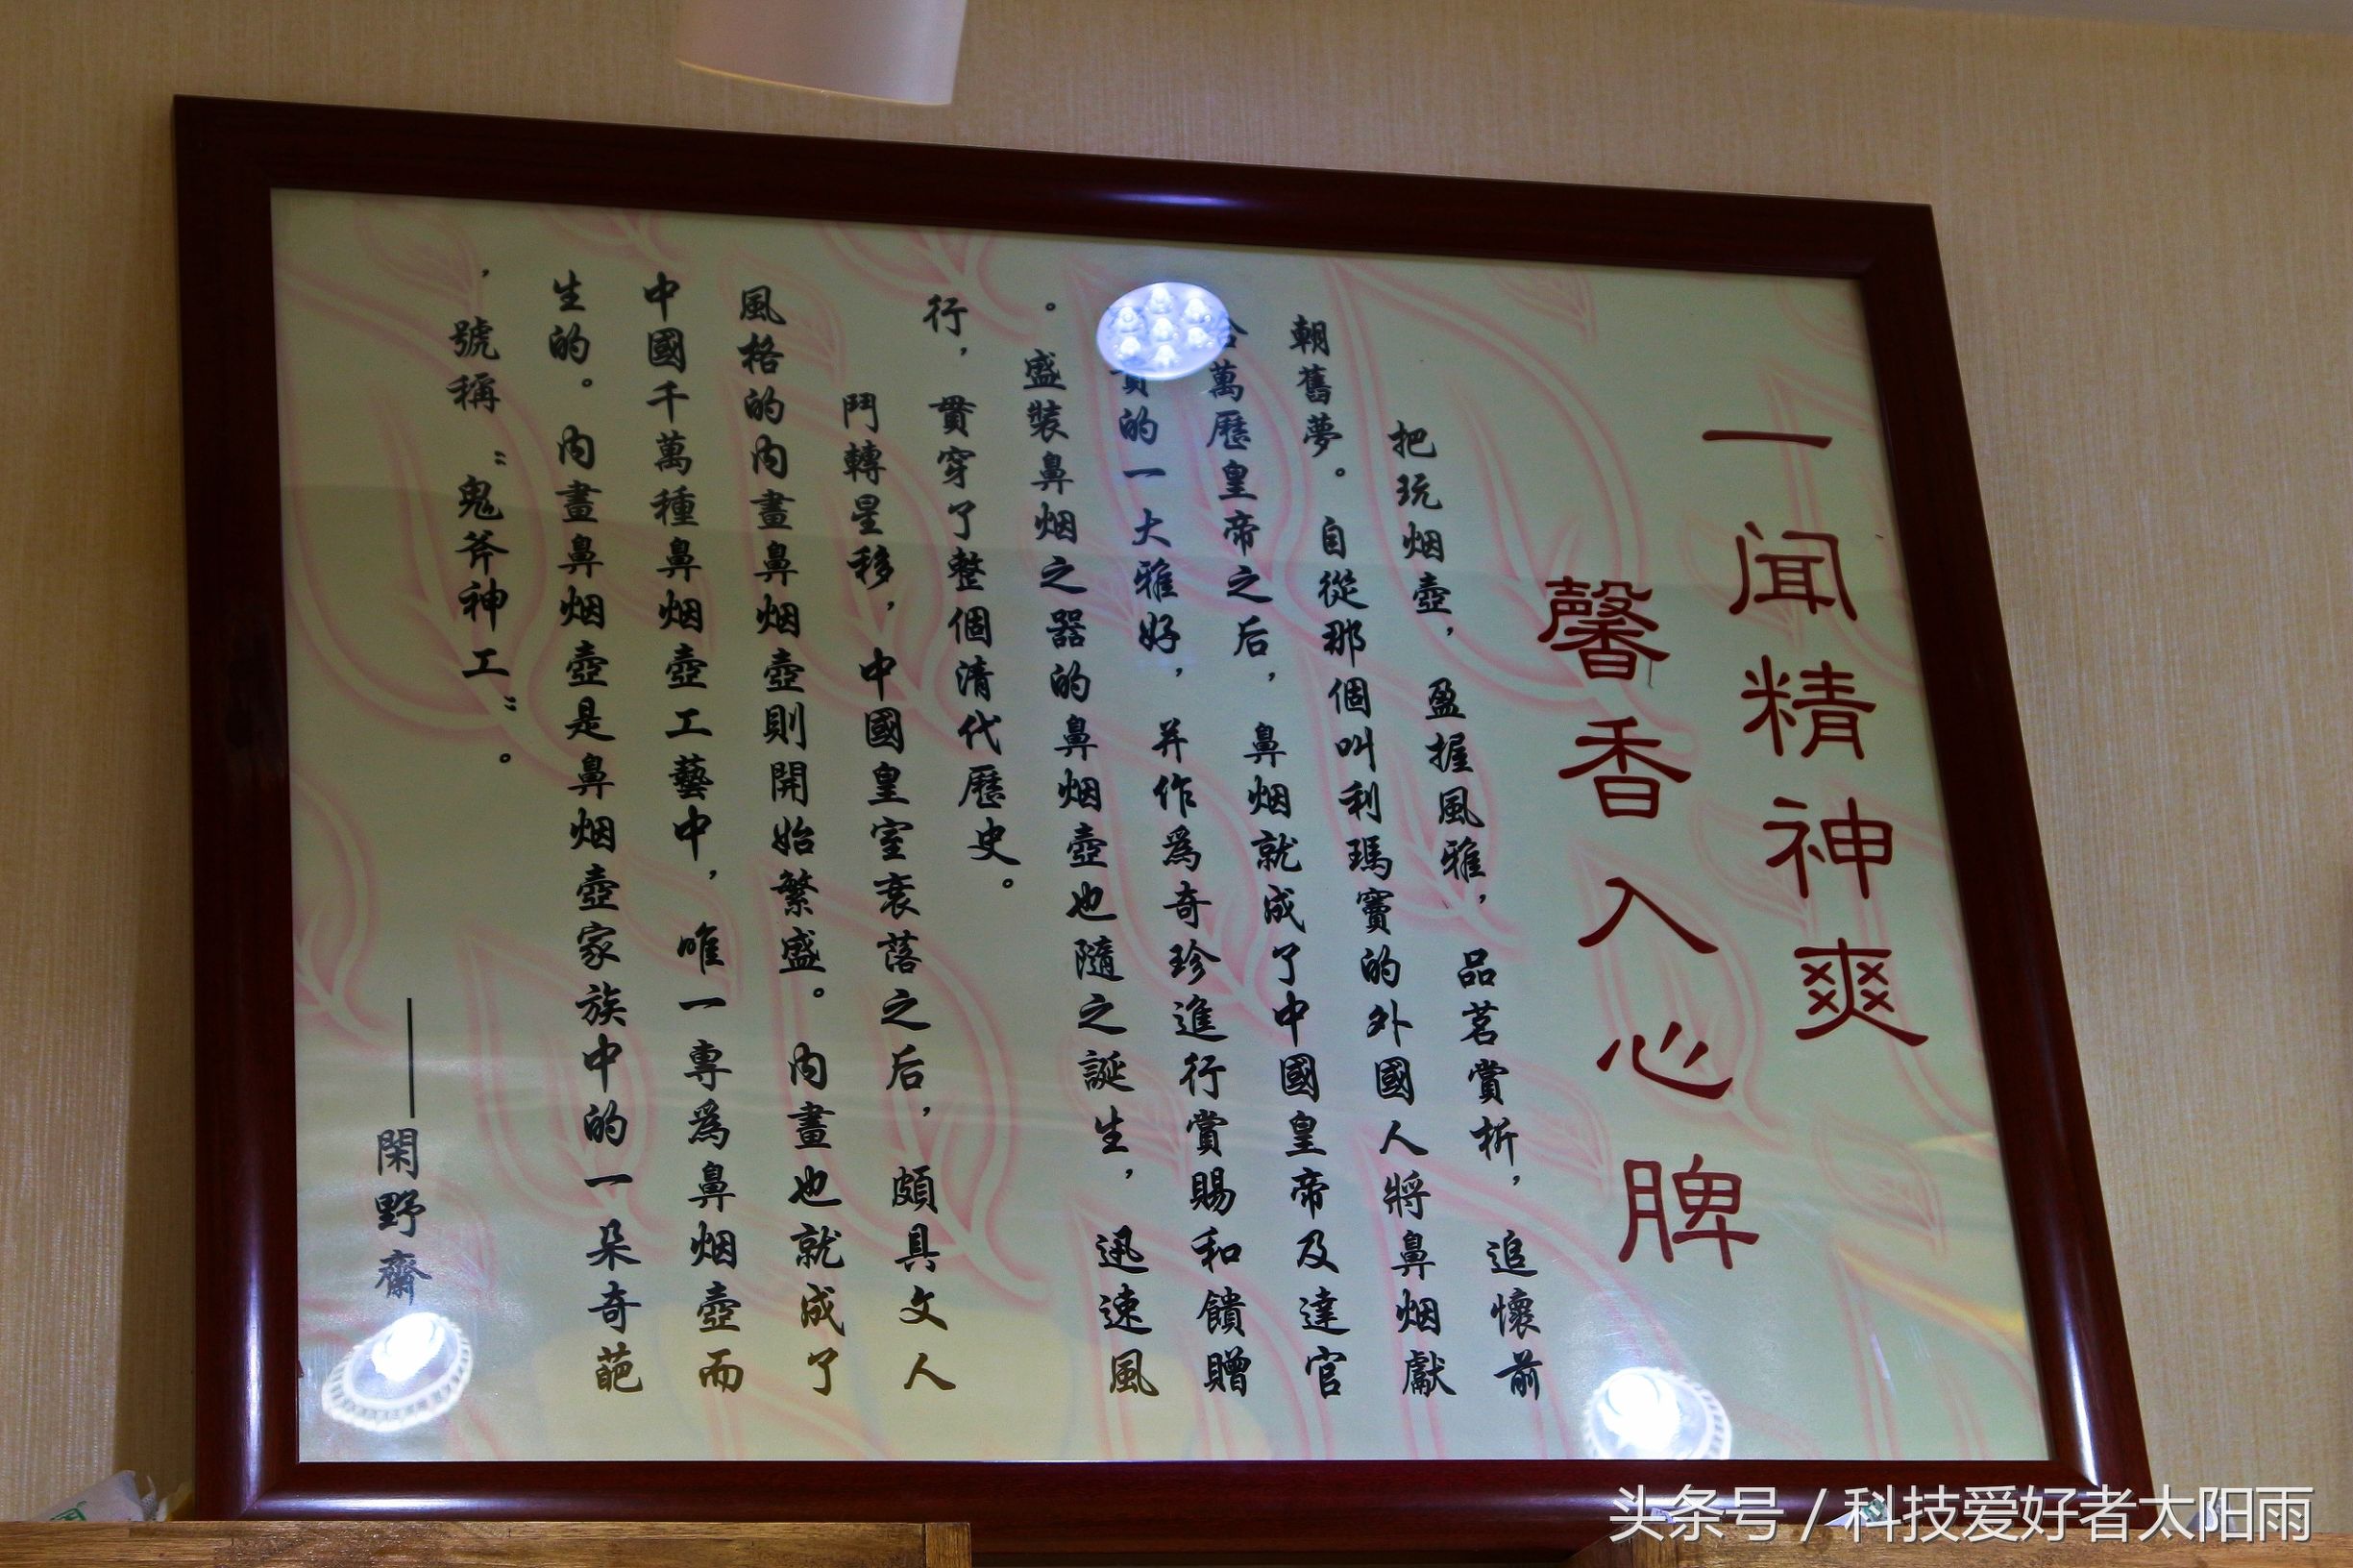 一闻精神爽
馨香入心脾
把玩烟壺，盈握風雅，品茗賞析，追懷前
朝舊夢。自從那個叫利瑪竇的外國人將鼻烟獻
萬歷皇帝之后，鼻烟就成了中國皇帝及達官
的一大雅好，并作爲奇珍進行賞賜和饋贈
。盛裝鼻烟之器的鼻烟壺也隨之誕生，迅速風
行，貫穿了整個清代歷史。
鬥轉星移，中國皇室衰落之后，頗具文人
風格的内畫鼻烟壺則開始繁盛。内畫也就成了
中國千萬種鼻烟壺工藝中，唯一專爲鼻烟壺而
生的。内畫鼻烟壺是鼻烟壺家族中的一朵奇葩
，號稱“鬼斧神工”。
——閑野齋
头条号 / 科技爱好者太阳雨